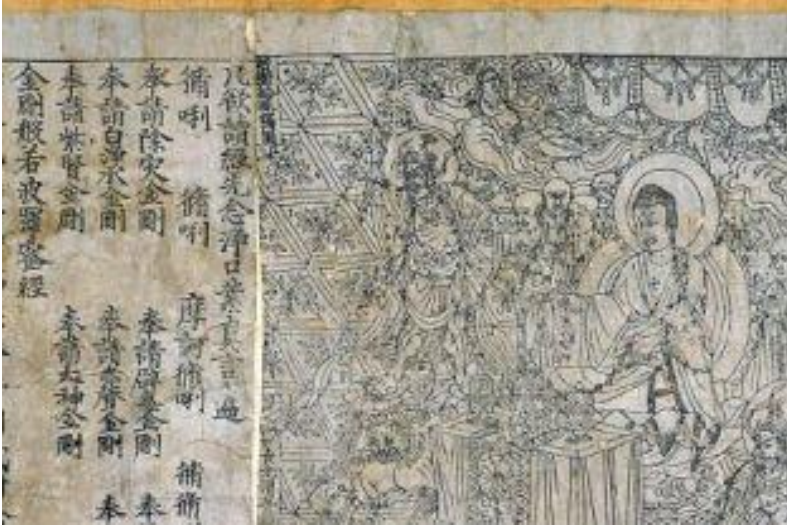 凡欲讀經先念淨口業真言一遍
脩唎 脩唎 摩訶脩唎 脩脩
奉請除災金剛 奉請辟毒金剛 奉
奉請白淨水金剛 奉請赤聲金剛 奉
奉請紫賢金剛 奉請大神金剛
金剛般若波羅蜜經